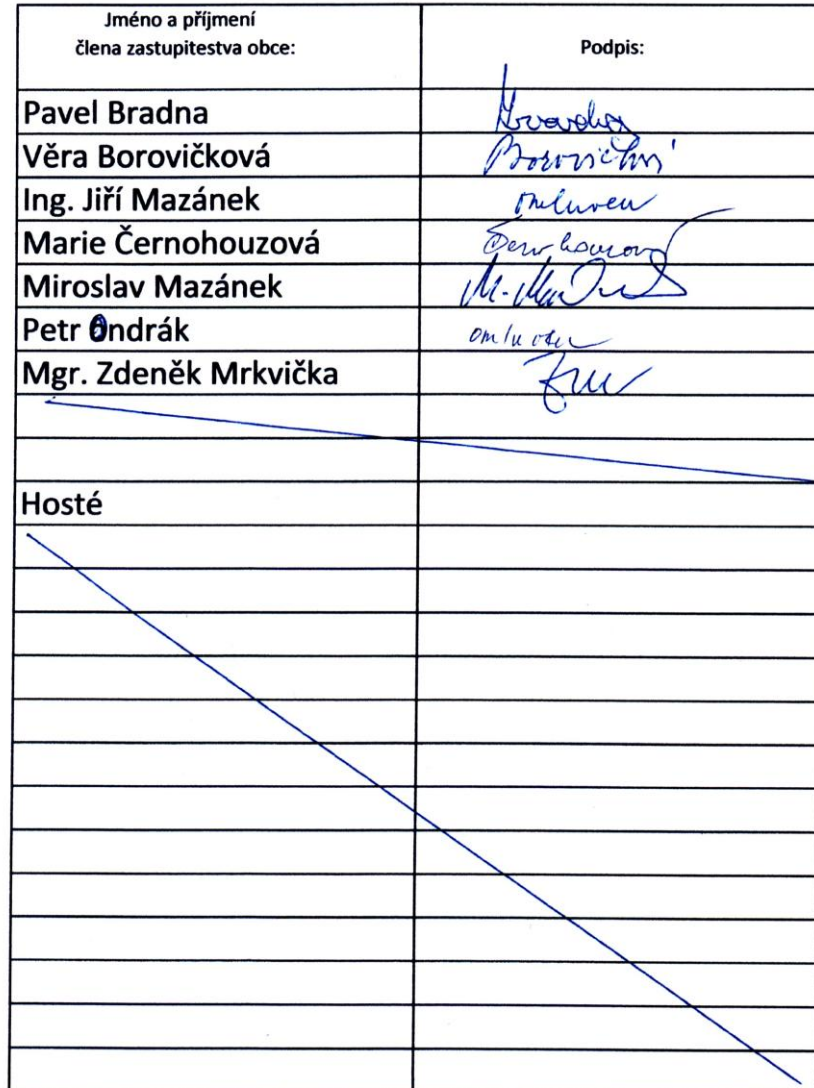 Jméno a příjmení
člena zastupitestva obce:
Podpis:
Pavel Bradna
Věra Borovičková
Ing. Jiří Mazánek omluven
Marie Černohouzová
Miroslav Mazánek
Petr Ondrák omluven
Mgr. Zdeněk Mrkvička
Hosté